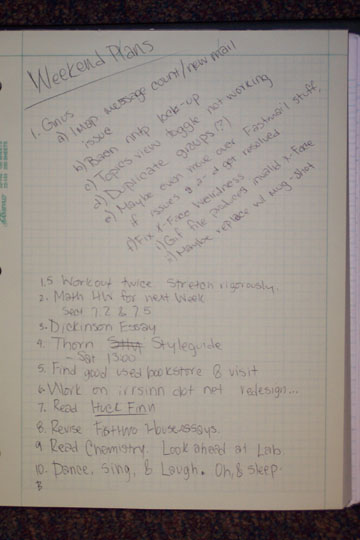 Weekend Plans
1. Gnus
a) Imap message count/new mail
issue
b) Bbdb nntp look-up
c) Topics view toggle not working
d) Duplicate groups (?)
e) Maybe even move over Fastmail stuff,
if issues a-d get resolved
f) Fix X-Face weirdness
i) Gif file producing invalid X-Face
ii) Maybe replace w/ mug-shot
1.5 Workout twice. Stretch rigorously.
2. Math HW for next week
Sect 7.2 & 7.5
3. Dickinson Essay
4. Thorn Styleguide
- Sat 1300
5. Find good used bookstore & visit
6. Work on irrsinn dot net redesign...
7. Read Huck Finn
8. Revise
9. Read Chemistry. Look ahead at Lab
10. Dance, Sing, & Laugh. Oh, & sleep.